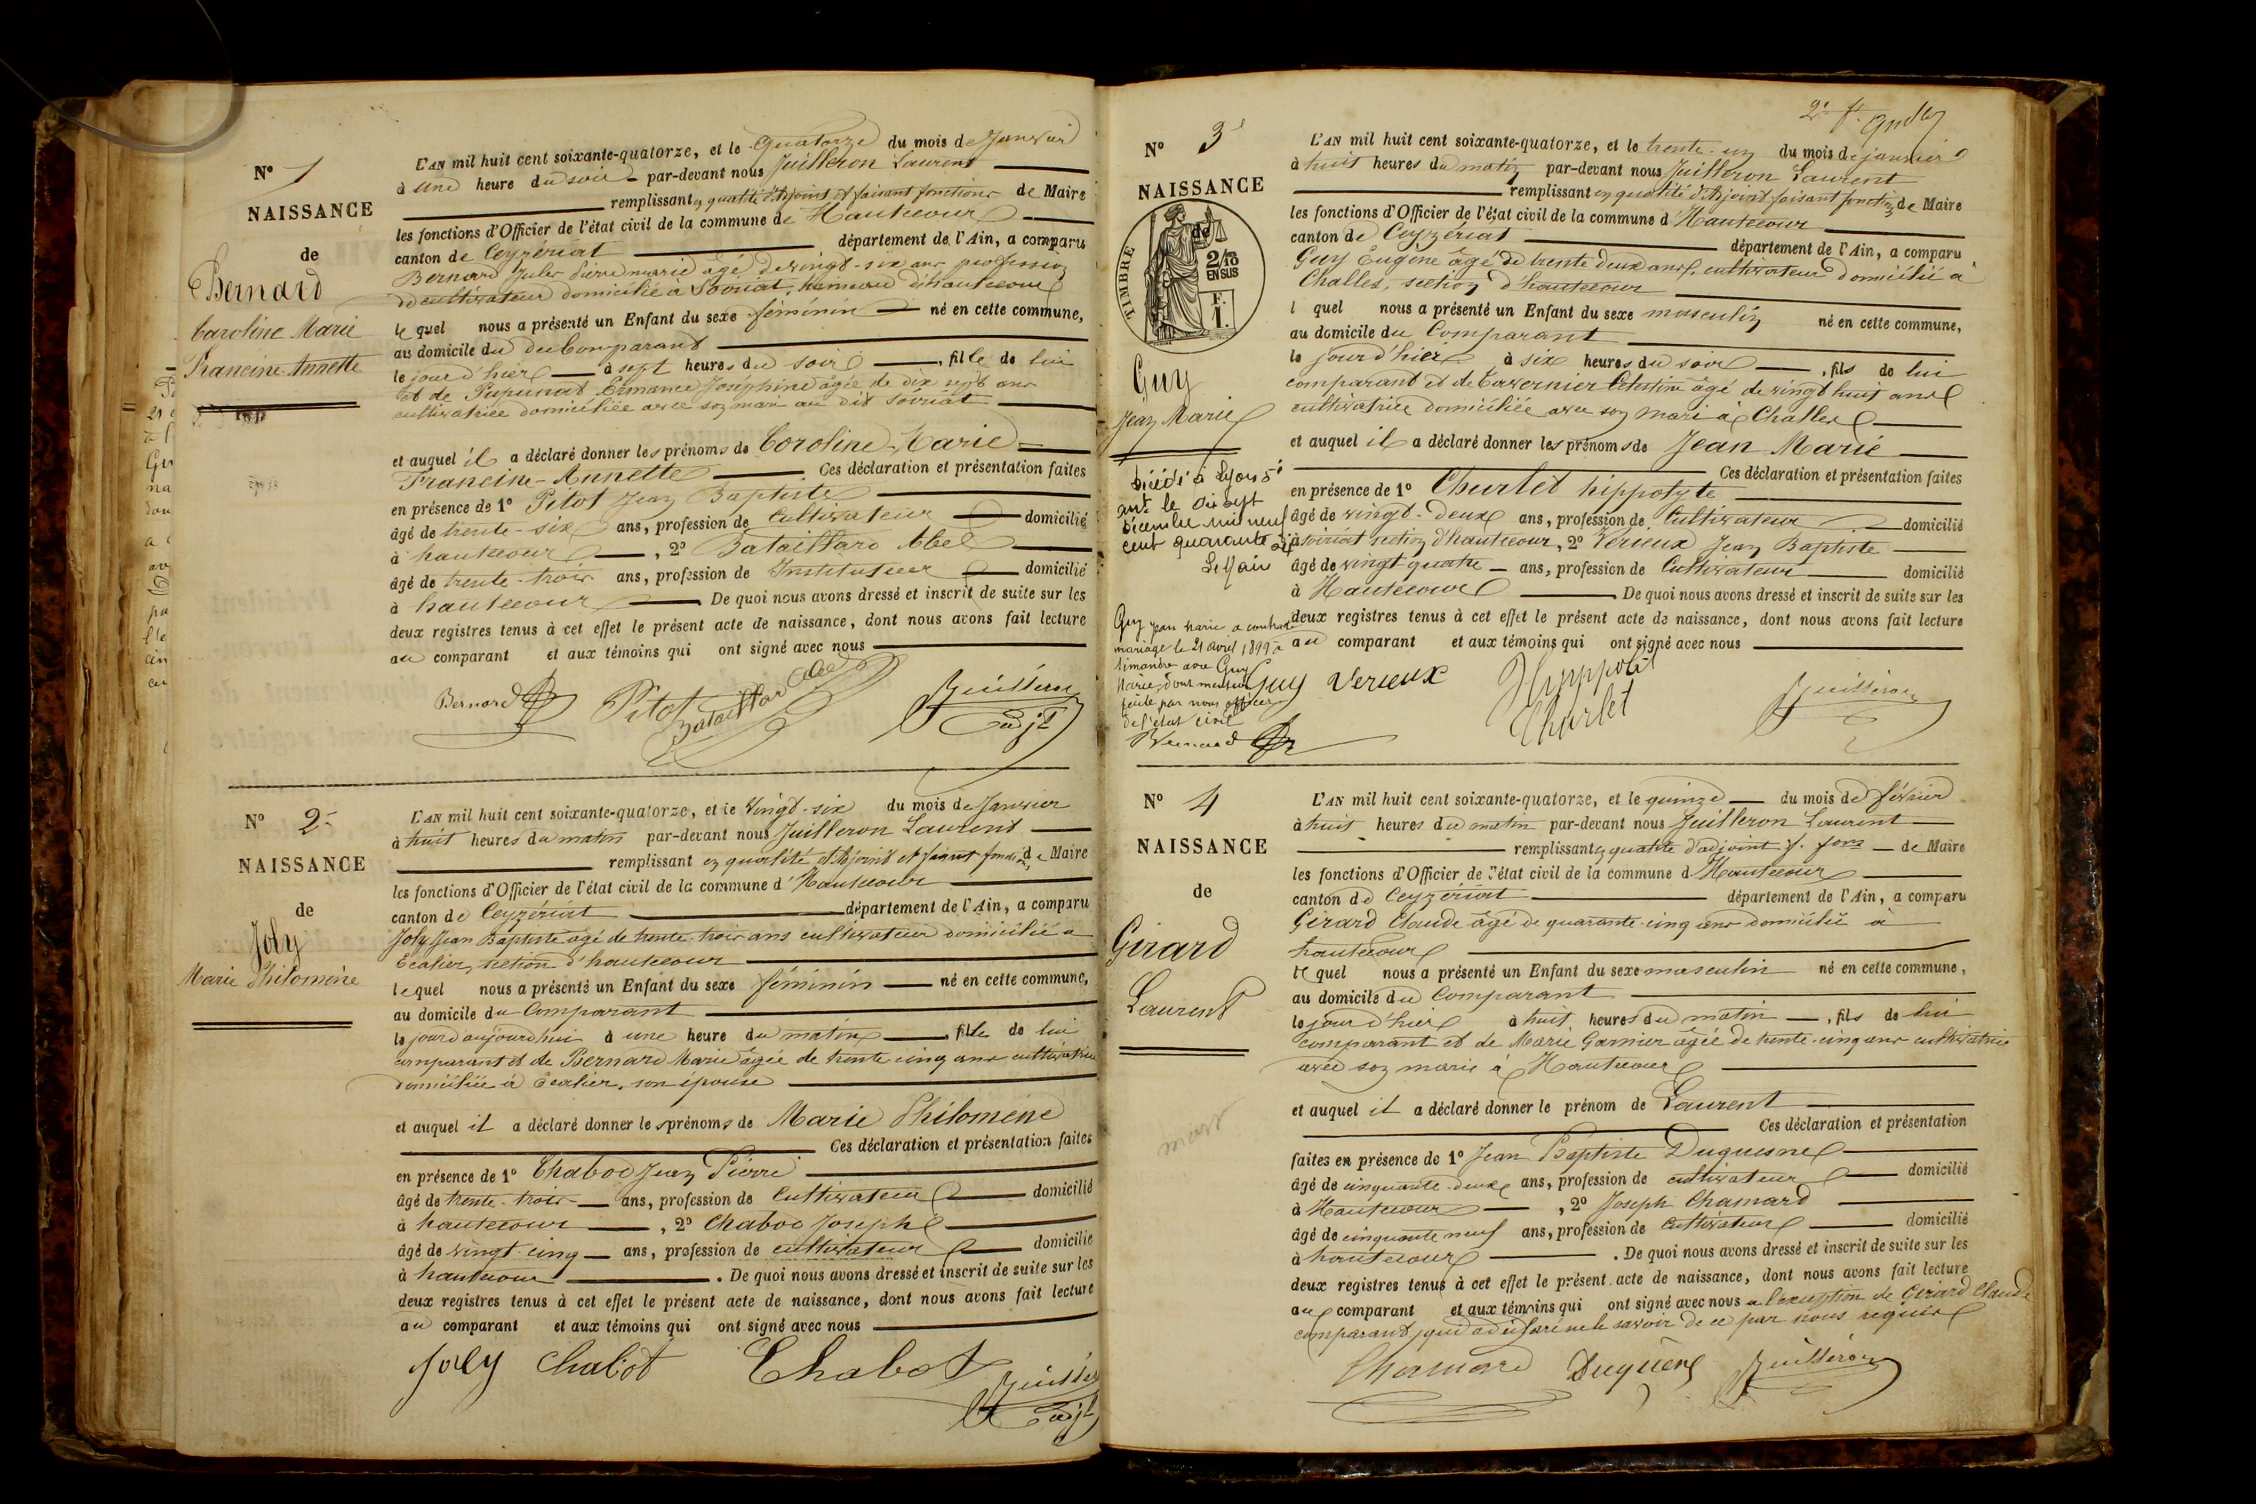 N° 1
NAISSANCE
de
Bernard
Caroline Marie
Francine Annette
L'AN mil huit cent soixante-quatorze, et le Quatorze du mois de Janvier
à une heure du soir par-devant nous Juilleron Laurent
remplissant en qualité d'Adjoint et faisant fonctions de Maire
les fonctions d'Officier de l'état civil de la commune de Hautecour
canton de Ceyzériat département de l'Ain, a comparu
Bernard Jules Pierre marie âgé de vingt-six ans profession
de cultivateur domicilié à Sovriat, hameau d'hautecour
le quel nous a présenté un Enfant du sexe féminin né en cette commune,
au domicile du du Comparant
le jour d'hier à sept heures du soir, fille de lui
et de Pupunat Ermance Joséphine âgée de dix sept ans
cultivatrice domiciliée avec son mari au dit Sovriat
et auquel il a déclaré donner les prénoms de Coroline-Marie
Francine-Annette Ces déclaration et présentation faites
en présence de 1° Pitot Jean Baptiste
âgé de trente-six ans, profession de Cultivateur domicilié
à hautecour, 2° Bataillard Abel
âgé de trente-trois ans, profession de Instituteur domicilié
à hautecour De quoi nous avons dressé et inscrit de suite sur les
deux registres tenus à cet effet le présent acte de naissance, dont nous avons fait lecture
au comparant et aux témoins qui ont signé avec nous
Bernard Pitot Bataillard Abel Juilleron
adjt
N° 2
NAISSANCE
de
Joly
Marie Philomène
L'AN mil huit cent soixante-quatorze, et le Vingt-six du mois de Janvier
à huit heures du matin par-devant nous Juilleron Laurent
remplissant en qualité d'Adjoint et faisant fonction de Maire
les fonctions d'Officier de l'état civil de la commune d'Hautecour
canton de Ceyzériat département de l'Ain, a comparu
Joly Jean Baptiste âgé de trente-trois ans cultivateur domicilié à
Ecalier, section d'hautecour
lequel nous a présenté un Enfant du sexe féminin né en cette commune,
au domicile du Comparant
le jour d'aujourd'hui à une heure du matin, fille de lui
comparant et de Bernard Marie âgée de trente-cinq ans cultivatrice
domiciliée à Ecalier, son épouse
et auquel il a déclaré donner les prénoms de Marie Philomène
Ces déclaration et présentation faites
en présence de 1° Chabod Jean Pierre
âgé de trente-trois ans, profession de Cultivateur domicilié
à hautecour, 2° Chabod Joseph
âgé de vingt-cinq ans, profession de cultivateur domicilié
à hautecour. De quoi nous avons dressé et inscrit de suite sur les
deux registres tenus à cet effet le présent acte de naissance, dont nous avons fait lecture
au comparant et aux témoins qui ont signé avec nous
Joly Chabot Chabot
adjt
N° 3
NAISSANCE
de
TIMBRE
2/10
EN SUS
Guy
Jean Marie
Décédé à Lyon 5e
arrt le dix sept
décembre mil neuf
cent quarante six
Le Maire
Guy Jean Marie a contracté
mariage le 21 avril 1899 à
Simandre avec Guy
Marie, dont mention
faite par nous officier
de l'état civil
Bernard
L'AN mil huit cent soixante-quatorze, et le trente-un du mois de janvier
à huit heures du matin par-devant nous Juilleron Laurent
remplissant en qualité d'Adjoint faisant fonction de Maire
les fonctions d'Officier de l'état civil de la commune d'Hautecour
canton de Ceyzériat département de l'Ain, a comparu
Guy Eugène âgé de trente deux ans, cultivateur domicilié à
Challes, section d'hautecour
l quel nous a présenté un Enfant du sexe masculin né en cette commune,
au domicile du Comparant
le jour d'hier à six heures du soir, fils de lui
comparant et de Tavernier Célestine âgé de vingt huit ans
cultivatrice domiciliée avec son mari à Challes
et auquel il a déclaré donner les prénoms de Jean Marie
Ces déclaration et présentation faites
en présence de 1° Churlet hippolyte
âgé de vingt-deux ans, profession de Cultivateur domicilié
à soiriat section d'hautecour, 2° Verieux Jean Baptiste
âgé de vingt-quatre ans, profession de Cultivateur domicilié
à Hautecour De quoi nous avons dressé et inscrit de suite sur les
deux registres tenus à cet effet le présent acte de naissance, dont nous avons fait lecture
au comparant et aux témoins qui ont signé avec nous
Guy Verieux Hyppolit Juilleron
Churlet
N° 4
NAISSANCE
de
Girard
Laurent
L'AN mil huit cent soixante-quatorze, et le quinze du mois de février
à huit heures du matin par-devant nous Juilleron Laurent
remplissant en qualité d'adjoint f. fons de Maire
les fonctions d'Officier de l'état civil de la commune d Hautecour
canton de Ceyzériat département de l'Ain, a comparu
Girard Claude âgé de quarante-cinq ans domicilié à
hautecour
le quel nous a présenté un Enfant du sexe masculin né en cette commune,
au domicile du Comparant
le jour d'hier à huit heures du matin, fils de lui
comparant et de Marie Garnier âgée de trente-cinq ans cultivatrice
avec son marie à Hautecour
et auquel il a déclaré donner le prénom de Laurent
Ces déclaration et présentation
faites en présence de 1° Jean Baptiste Duquesne
âgé de cinquante-deux ans, profession de cultivateur domicilié
à Hautecour, 2° Joseph Chamard
âgé de cinquante neuf ans, profession de Cultivateur domicilié
à hautecour. De quoi nous avons dressé et inscrit de suite sur les
deux registres tenus à cet effet le présent acte de naissance, dont nous avons fait lecture
au comparant et aux témoins qui ont signé avec nous a l'exception de Girard Claude
comparant, qui a déclaré ne le savoir de ce par nous requis
Chamard Duquène Juilleron